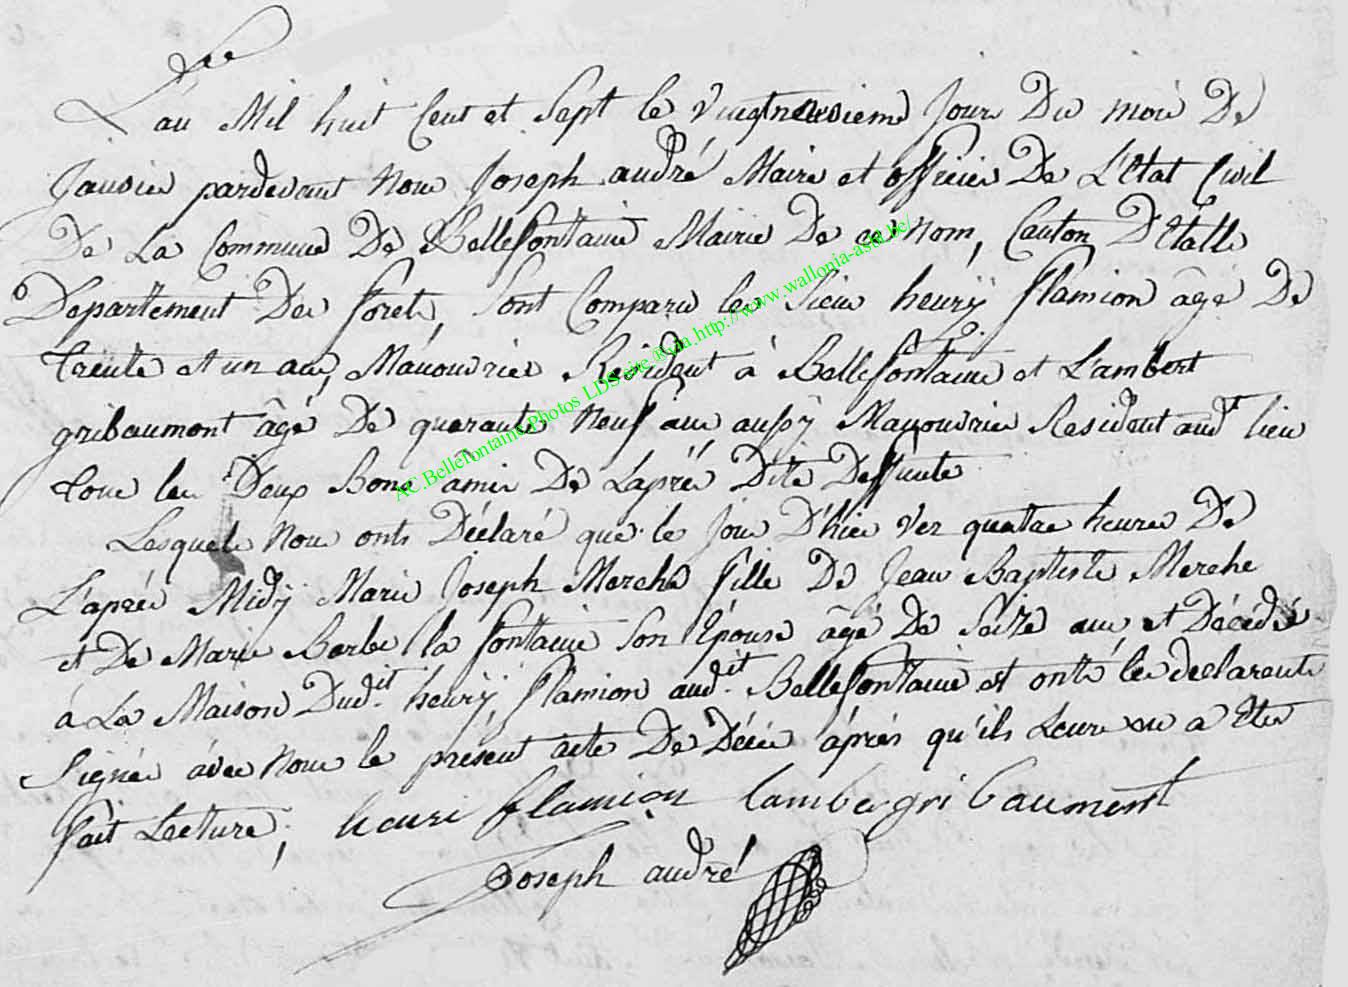 L'an Mil huit Cent et Sept le vingtneuvieme Jour Du mois De
Janvier pardevant Nous Joseph andré Maire et officier De L'Etat Civil
De La Commune De Bellefontaine Mairie De ce nom, Canton D'Etalle
Département Des forets, Sont Comparu les Sieur henrÿ flamion âgé De
trente et un ans, Manouvrier Resident à Bellefontaine et Lambert
gribaumont âgé De quarante Neuf ans aussÿ Manouvrier Resident aud.t lieu
tous les Deux Bons amis De Laprés Dite Deffunte
Lesquels Nous onts Déclaré que le Jour D'hier vez quatre heures De
L'aprés Midÿ Marie Joseph Merche fille De Jean Baptiste Merche
et De Marie Barbe la fontaine Son Epouse âgé De Seize ans est Décédée
à La Maison Dud.it henrÿ flamion aud.it Bellefontaine et onts les declarents
Signés avec Nous le présent acte De Décès aprés qu'ils Leurs en a Eter
fait Lecture; henri flamion Lamber gribaumont
Joseph andré
AC.Bellefontaine.Photos LDS site @via http://www.wallonia-asbl.be/